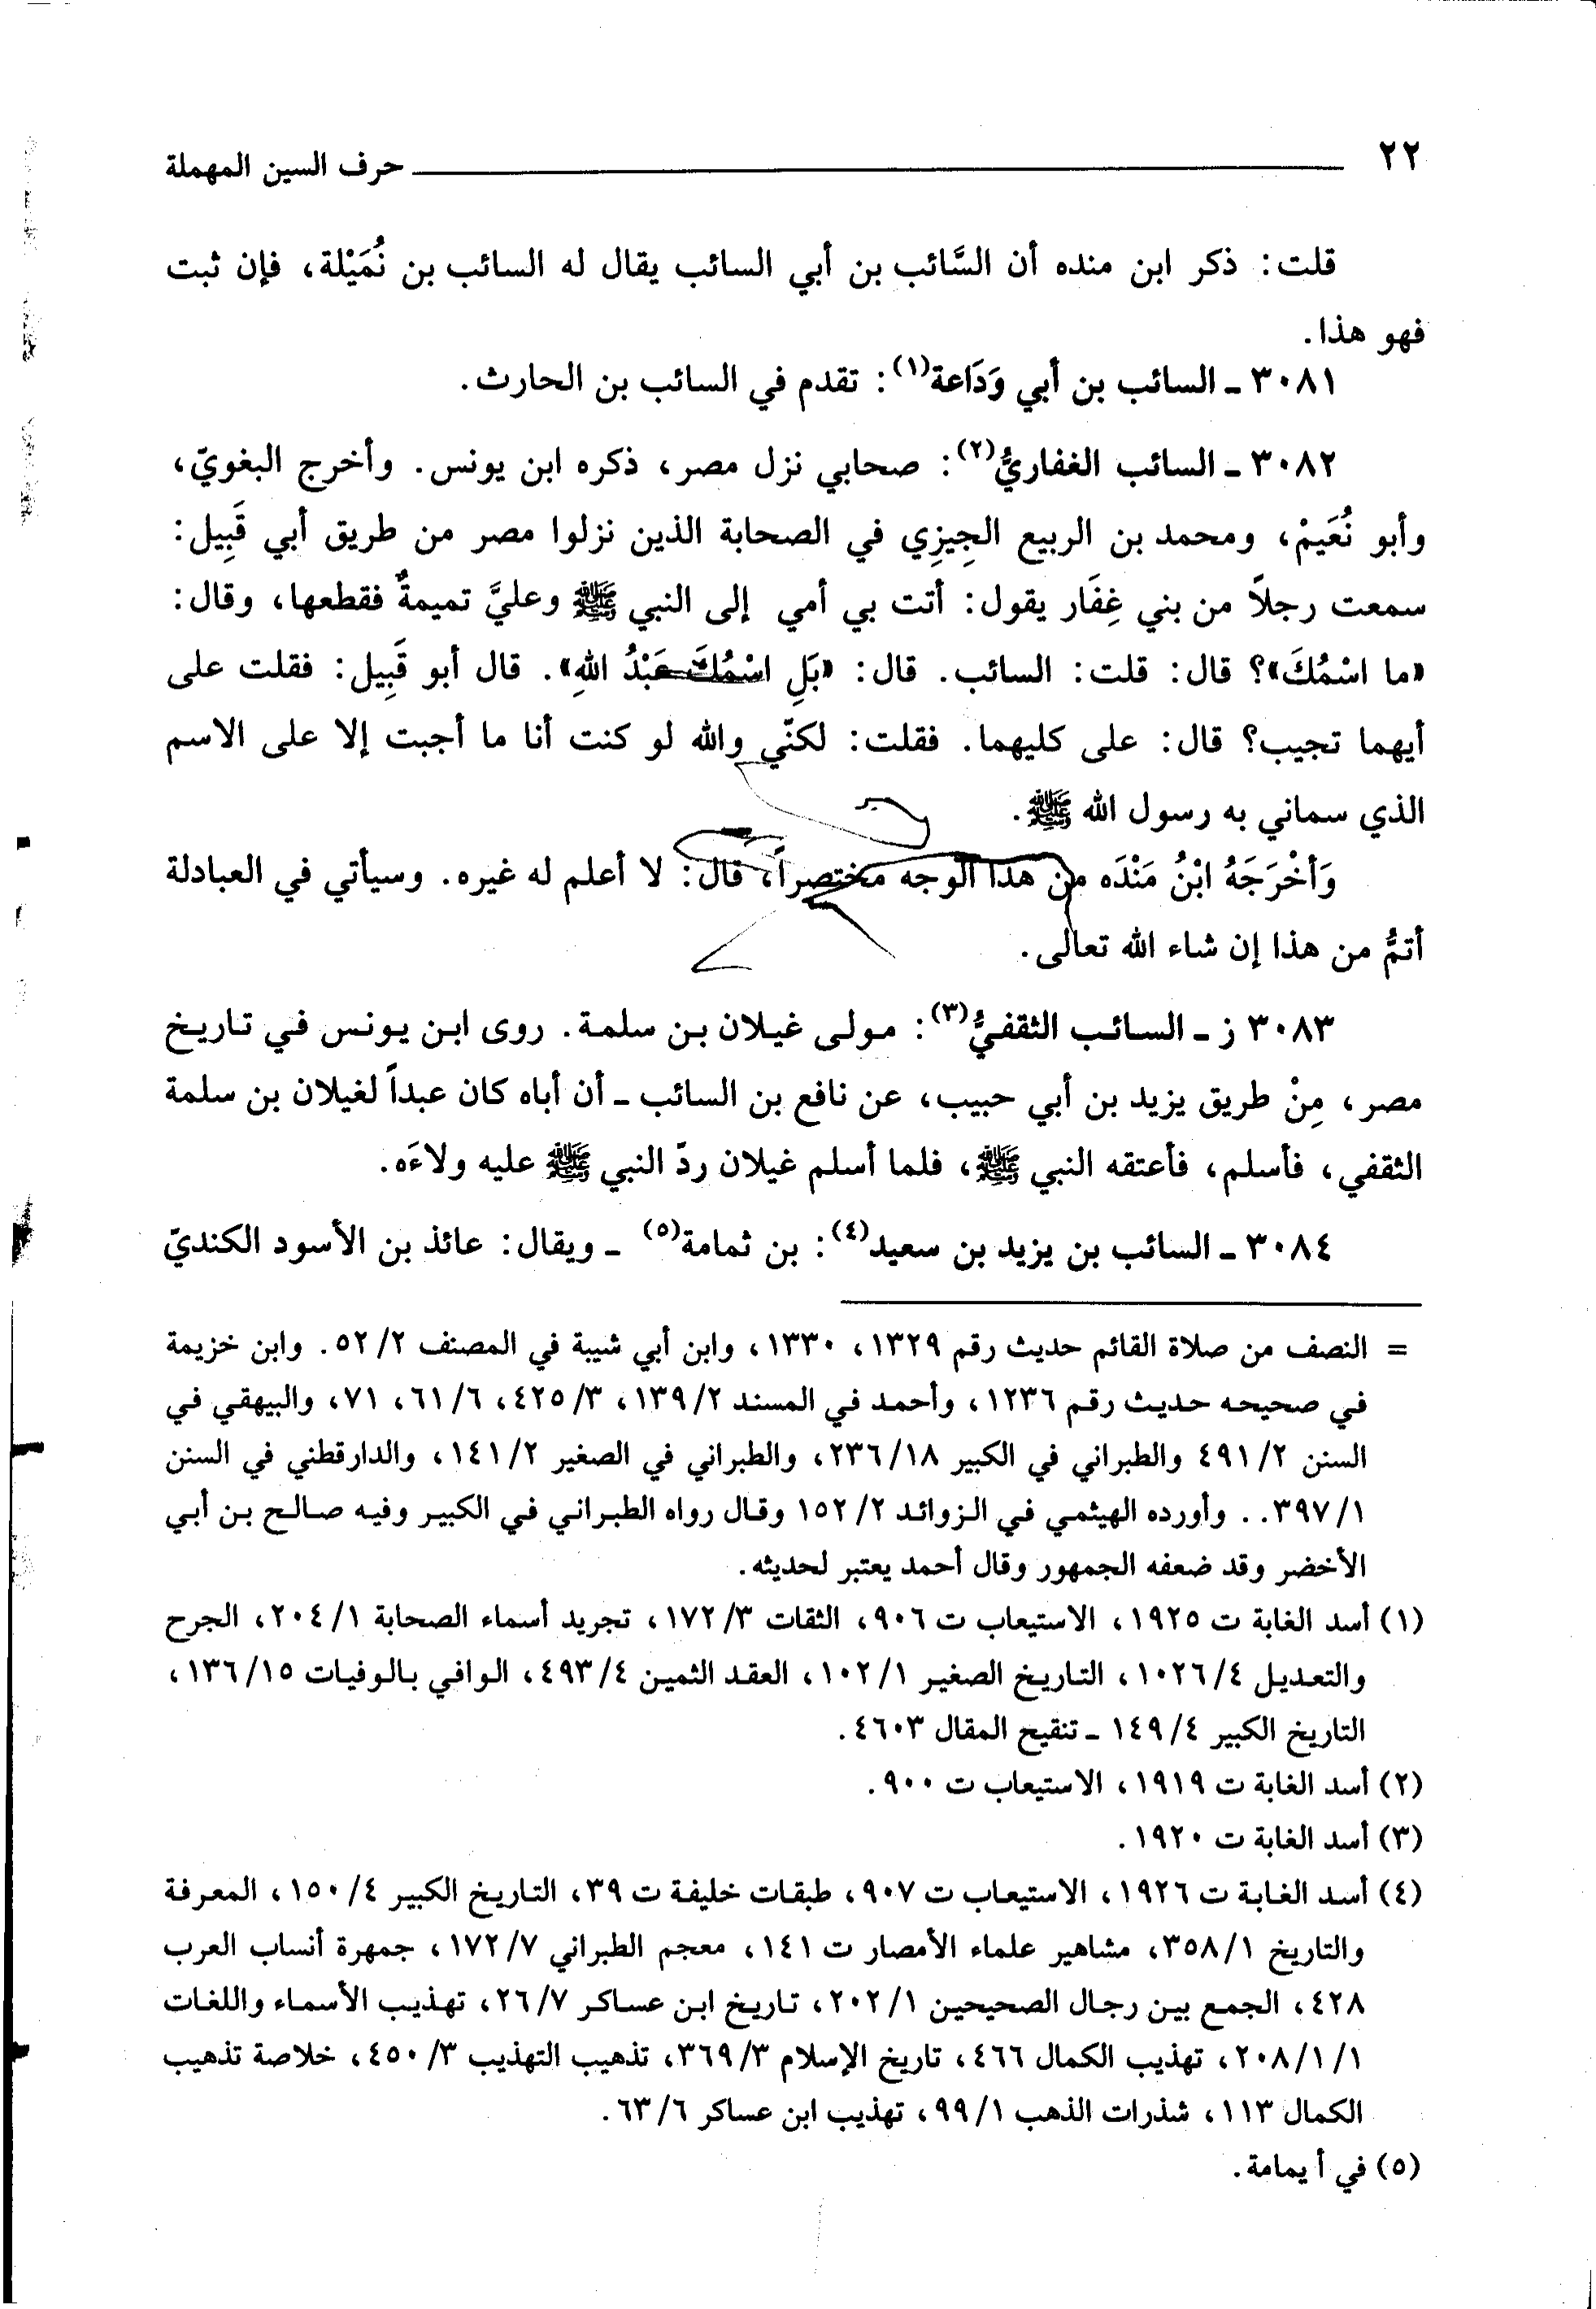 ٢٢ حرف السين المهملة
قلت: ذكر ابن منده أن السَّائب بن أبي السائب يقال له السائب بن نُمَيْلة، فإن ثبت
فهو هذا.
٣٠٨١ ـ السائب بن أبي وَدَاعة(١): تقدم في السائب بن الحارث.
٣٠٨٢ ـ السائب الغفاريُّ(٢): صحابي نزل مصر، ذكره ابن يونس. وأخرج البغويّ،
وأبو نُعَيمْ، ومحمد بن الربيع الجِيزِي في الصحابة الذين نزلوا مصر من طريق أبي قَبِيل:
سمعت رجلاً من بني غِفَار يقول: أتت بي أمي إلى النبي ﷺ وعليَّ تميمةٌ فقطعها، وقال:
«ما اسْمُكَ»؟ قال: قلت: السائب. قال: «بَلِ اسْمُكَ عَبْدُ اللهِ». قال أبو قَبِيل: فقلت على
أيهما تجيب؟ قال: على كليهما. فقلت: لكنّي والله لو كنت أنا ما أجبت إلا على الاسم
الذي سماني به رسول الله ﷺ.
وَأخْرَجَهُ ابْنُ مَنْدَه من هذا الوجه مختصراً، قال: لا أعلم له غيره. وسيأتي في العبادلة
أتمُّ من هذا إن شاء الله تعالى.
٣٠٨٣ ز ـ السائب الثقفيُّ(٣): مولى غيلان بن سلمة. روى ابن يونس في تاريخ
مصر، مِنْ طريق يزيد بن أبي حبيب، عن نافع بن السائب ـ أن أباه كان عبداً لغيلان بن سلمة
الثقفي، فأسلم، فأعتقه النبي ﷺ، فلما أسلم غيلان ردّ النبي ﷺ عليه ولاءَه.
٣٠٨٤ ـ السائب بن يزيد بن سعيد(٤): بن ثمامة(٥) ـ ويقال: عائذ بن الأسود الكنديّ
= النصف من صلاة القائم حديث رقم ١٣٢٩، ١٣٣٠، وابن أبي شيبة في المصنف ٥٢/٢. وابن خزيمة
في صحيحه حديث رقم ١٢٣٦، وأحمد في المسند ١٣٩/٢، ٤٢٥/٣، ٦١/٦، ٧١، والبيهقي في
السنن ٤٩١/٢ والطبراني في الكبير ٢٣٦/١٨، والطبراني في الصغير ١٤١/٢، والدارقطني في السنن
٣٩٧/١.. وأورده الهيثمي في الزوائد ١٥٢/٢ وقال رواه الطبراني في الكبير وفيه صالح بن أبي
الأخضر وقد ضعفه الجمهور وقال أحمد يعتبر لحديثه.
(١) أسد الغابة ت ١٩٢٥، الاستيعاب ت ٩٠٦، الثقات ١٧٢/٣، تجريد أسماء الصحابة ٢٠٤/١، الجرح
والتعديل ١٠٢٦/٤، التاريخ الصغير ١٠٢/١، العقد الثمين ٤٩٣/٤، الوافي بالوفيات ١٣٦/١٥،
التاريخ الكبير ١٤٩/٤ ـ تنقيح المقال ٤٦٠٣.
(٢) أسد الغابة ت ١٩١٩، الاستيعاب ت ٩٠٠.
(٣) أسد الغابة ت ١٩٢٠.
(٤) أسد الغابة ت ١٩٢٦، الاستيعاب ت ٩٠٧، طبقات خليفة ت ٣٩، التاريخ الكبير ١٥٠/٤، المعرفة
والتاريخ ٣٥٨/١، مشاهير علماء الأمصار ت ١٤١، معجم الطبراني ١٧٢/٧، جمهرة أنساب العرب
٤٢٨، الجمع بين رجال الصحيحين ٢٠٢/١، تاريخ ابن عساكر ٢٦/٧، تهذيب الأسماء واللغات
٢٠٨/١/١، تهذيب الكمال ٤٦٦، تاريخ الإسلام ٣٦٩/٣، تذهيب التهذيب ٤٥٠/٣، خلاصة تذهيب
الكمال ١١٣، شذرات الذهب ٩٩/١، تهذيب ابن عساكر ٦٣/٦.
(٥) في أ يمامة.